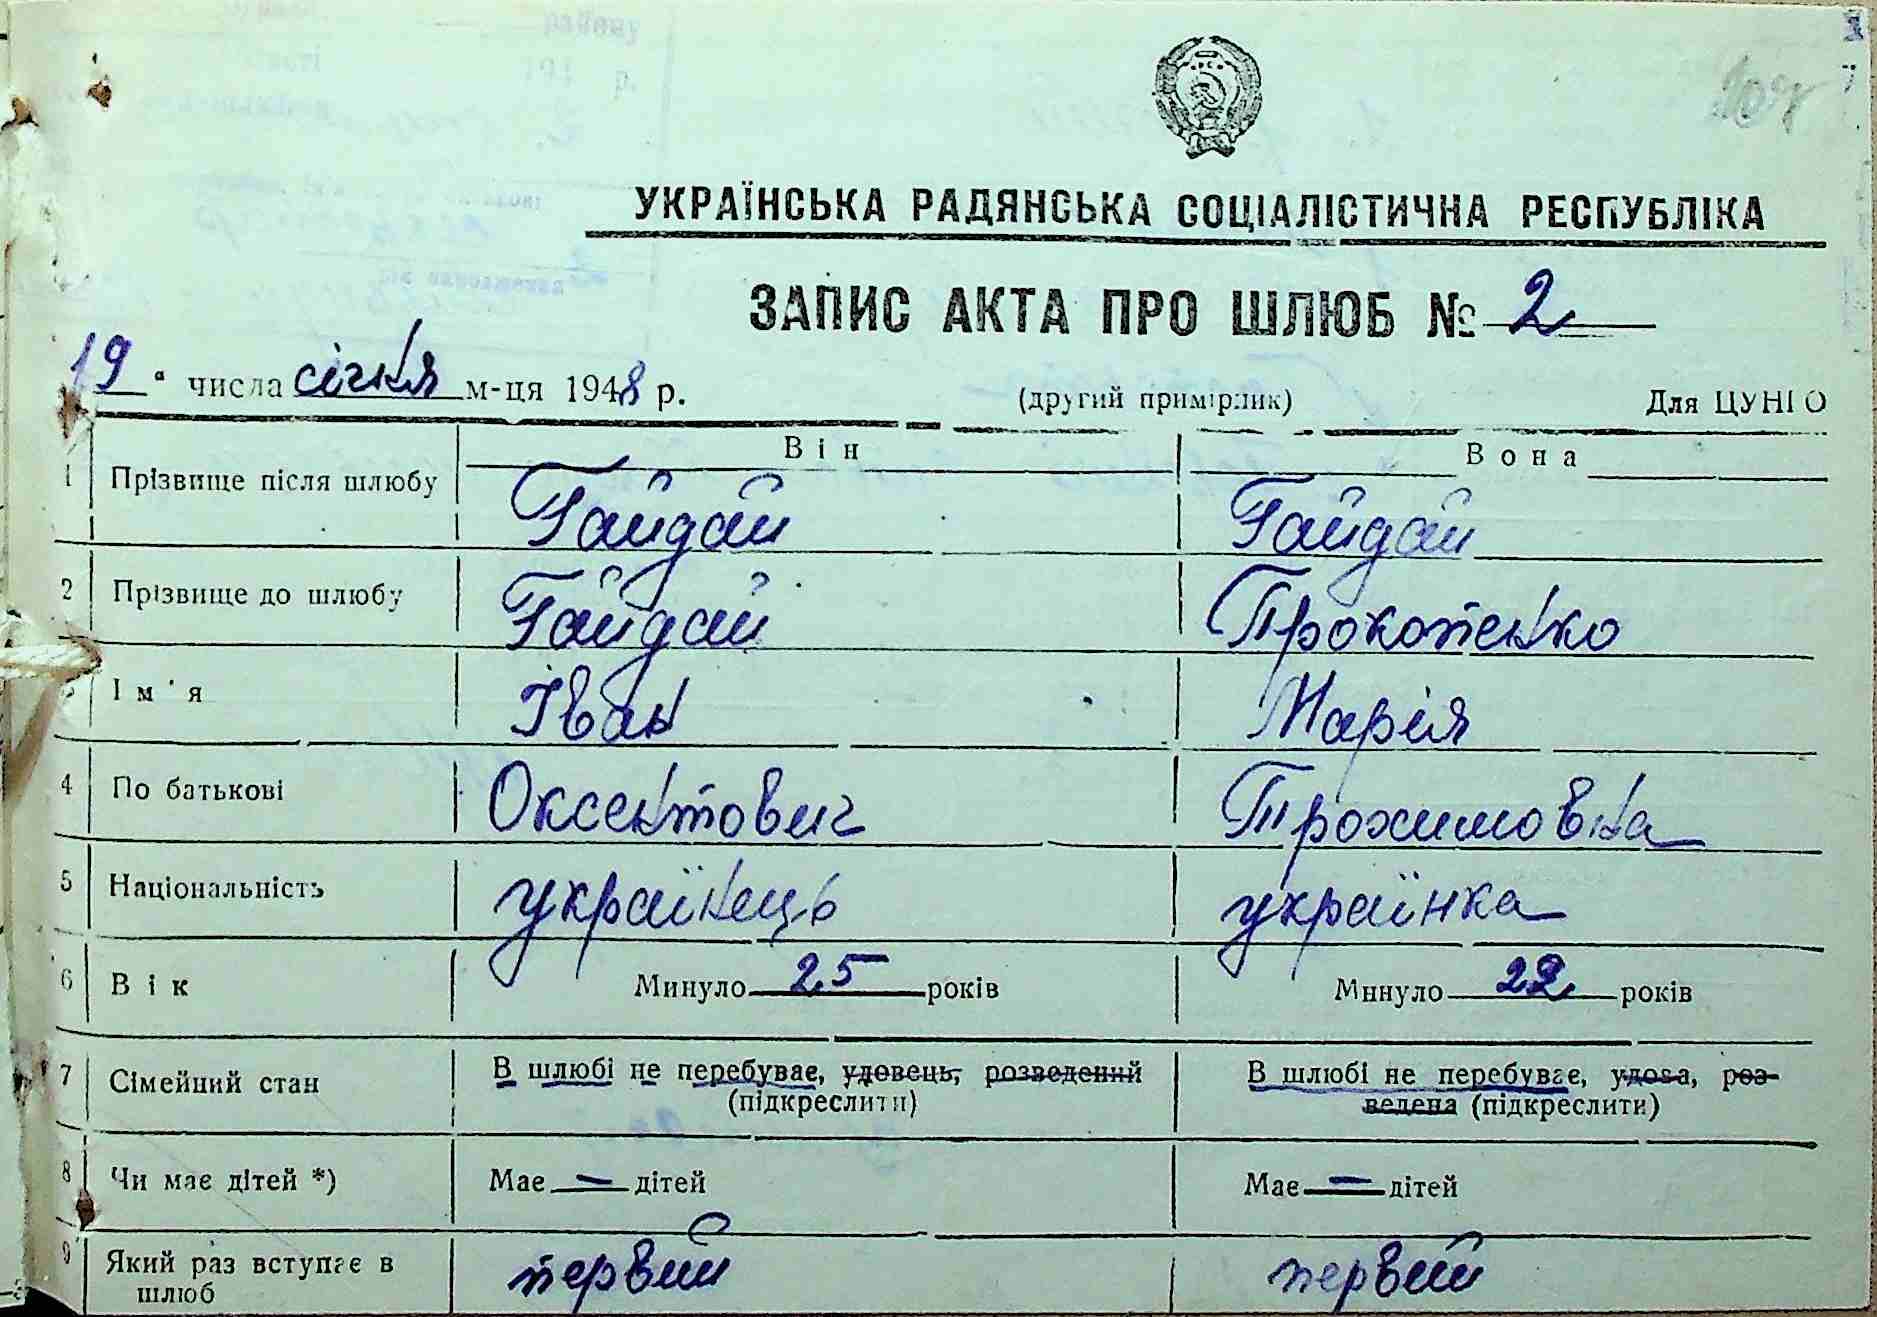 УКРАЇНСЬКА РАДЯНСЬКА СОЦІАЛІСТИЧНА РЕСПУБЛІКА
ЗАПИС АКТА ПРО ШЛЮБ № 2
19 " числа січня м-ця 1948 р. (другий примірник) Для ЦУНГО
Він Вона
1 Прізвище після шлюбу Гайдай Гайдай
2 Прізвище до шлюбу Гайдай Прокопенко
3 Ім'я Іван Марія
4 По батькові Оксентович Трохимовна
5 Національність українець українка
6 Вік Минуло 25 років Минуло 22 років
7 Сімейний стан В шлюбі не перебуває, удовець, розведений В шлюбі не перебуває, удова, роз-
(підкреслити) ведена (підкреслити)
8 Чи має дітей *) Має — дітей Має — дітей
9 Який раз вступає в первий первий
шлюб